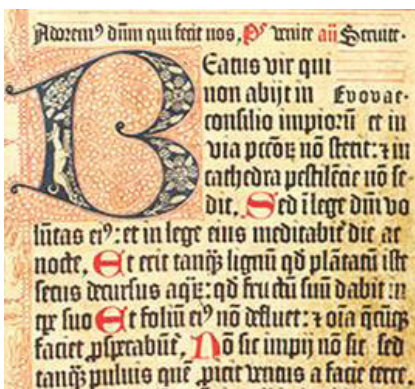 Adoremꝰ dn̄m qui fecit nos, p̄s venite añ Seruite.
Beatus vir qui
non abijt in Evovae.
consilio impioꝝ et in
via pctōꝝ nō stetit: ⁊ in
cathedra pestilēcie nō se-
dit, Sed ī lege dn̄i vo
lūtas eiꝰ: et in lege eius meditabit᷑ die ac
nocte, Et erit tanqͣꝫ lignū qd̄ plātatū iste
secus decursus aqͣꝝ: qd̄ fructū suū dabit in
tꝑe suo Et foliū eiꝰ nō defluet: ⁊ oīa q̄cūqꝫ
faciet ꝓsꝑabūt᷑, Nō sic impij nō sic sed
tanqͣꝫ puluis quē ꝓicit ventus a facie terre,